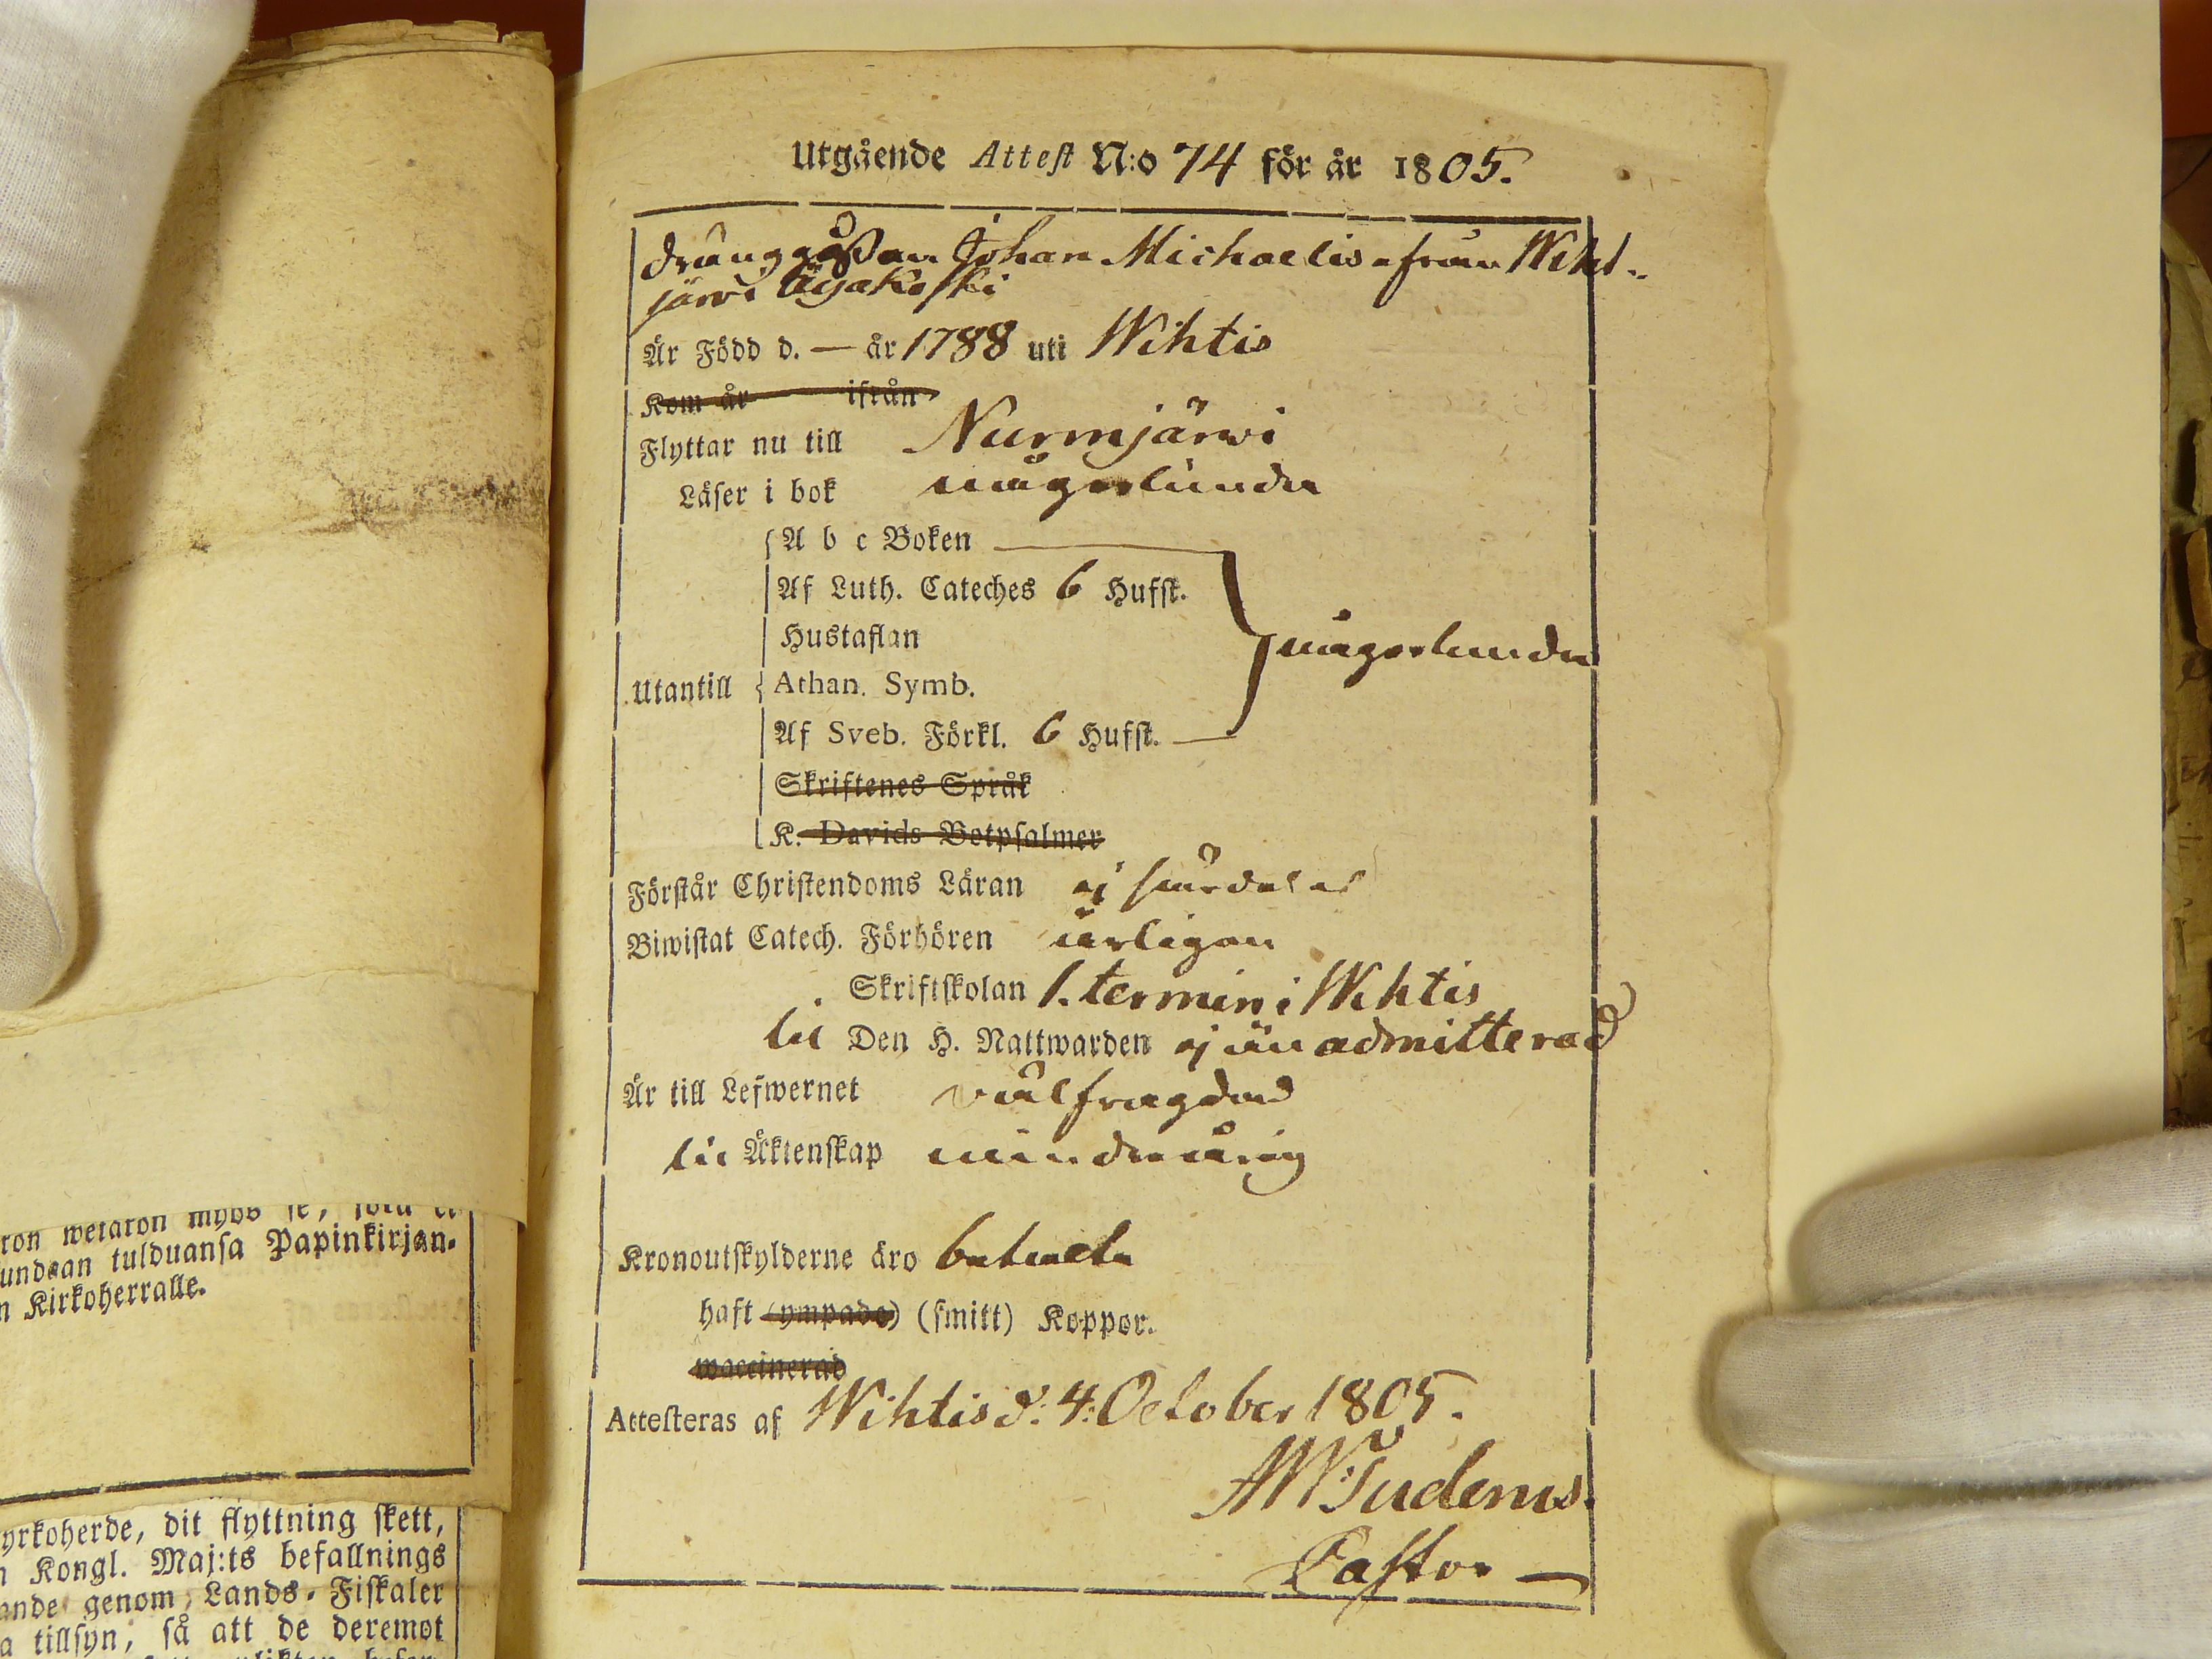 Utgående Attest N:o 74 för år 1805.
dränggåssen Johan Michaelis från Wiht-
järvi Ojakoski
Är Född d. — år 1788 uti Wihtis
Kom år ifrån
Flyttar nu till Nurmjärwi
Läser i bok någorlunda
A b c Boken
Af Luth. Cateches 6 Hufst.
Hustaflan
någorlunda
Utantill Athan. Symb.
Af Sveb. Förkl. 6 Hufst.
Skriftenes Språk
K. Davids Botpsalmer
Förstår Christendoms Läran ej särdeles
Biwistat Catech. Förhören årligen
Skriftskolan 1. termin i Wihtis
til Den H. Nattwarden ej än admitterad
Är till Lefwernet välfrägdad
til Äktenskap minderårig
Kronoutskylderne äro betalte
haft (ympade) (smitt) Koppor.
waccinerad
Attesteras af Wihtis d: 4: October 1805.
Pastor —
ron wetaron
undaan tulduansa Papinkirjan-
n Kirkoherralle.
yrkoherde, dit flyttning skett,
n Kongl. Maj:ts befallnings
ande genom Lands-Fiskaler
a tillsyn, så att de deremot